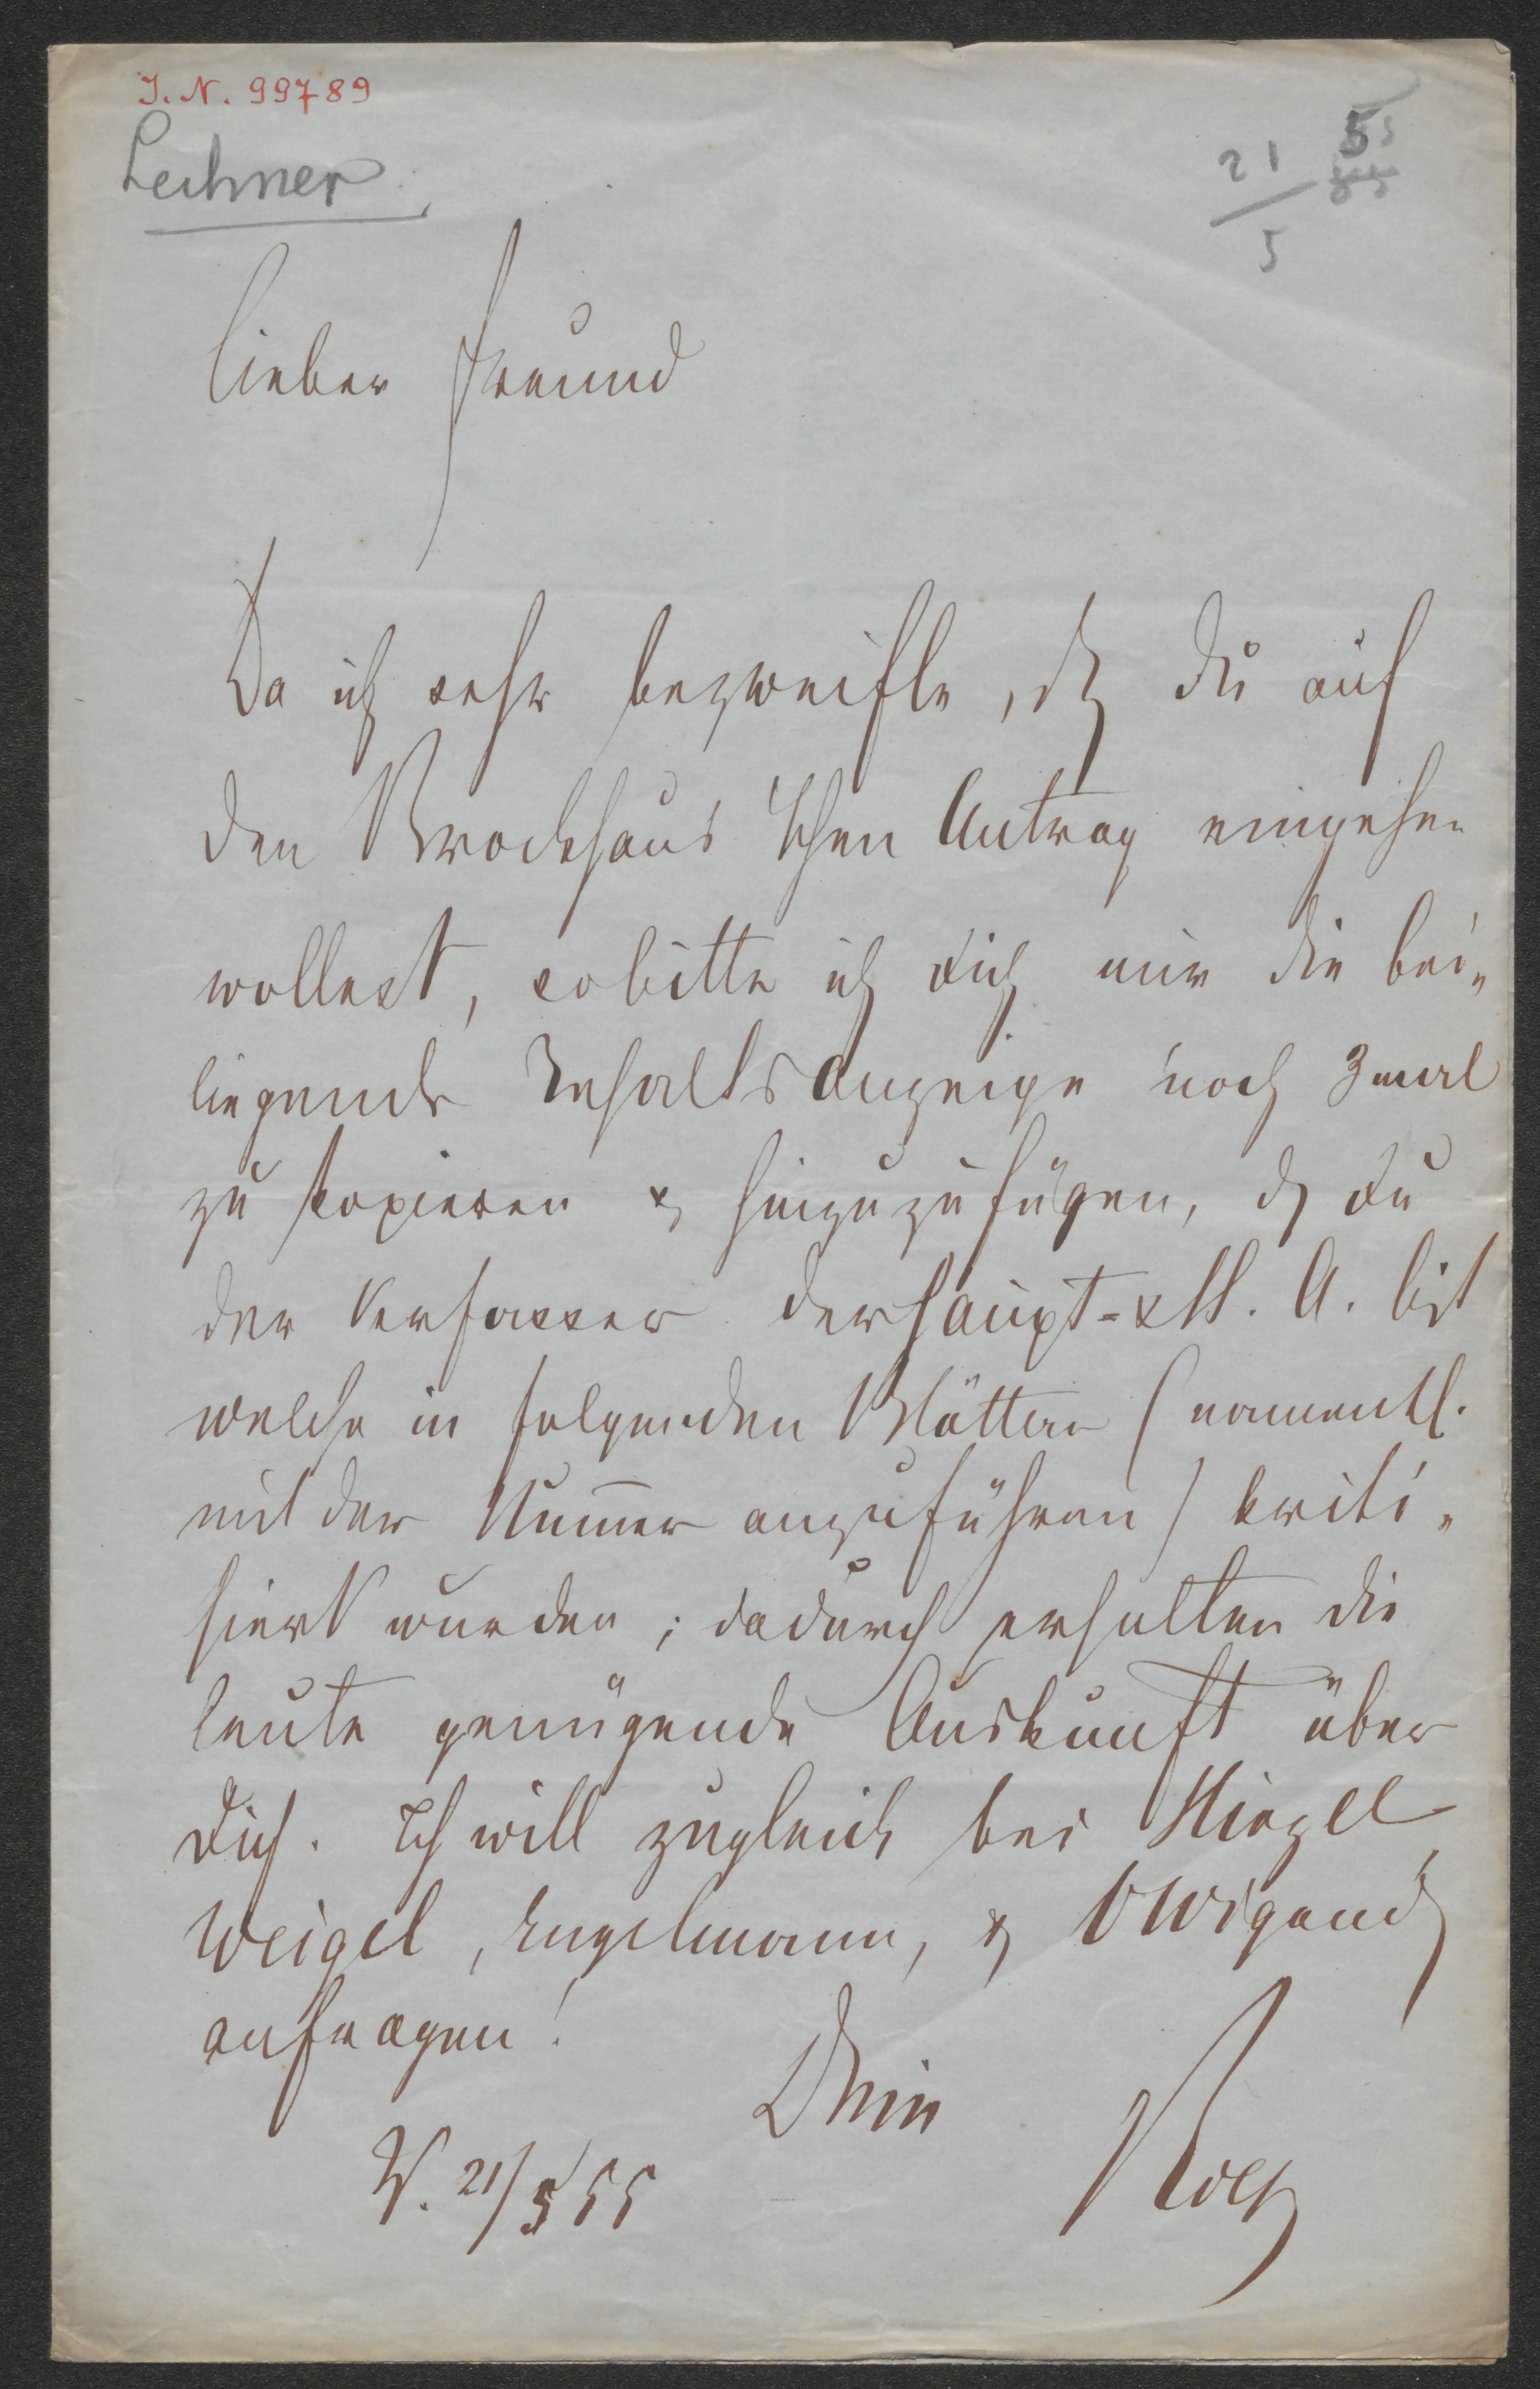 I. N. 99789
Lechner
21 55
5
Lieber Freund
Da ich sehr bezweifle, dß Du auf
den Brockhaus'schen Antrag eingehen
wollest, so bitte ich Dich mir die bei-
liegende Inhaltsanzeige noch 3mal
zu kopieren & hinzuzufügen, dß Du
der Verfasser der Haupt- & St. A. bist
welche in folgenden Blättern (namentl.
mit der Nummer anzuführen) kriti-
siert wurden; dadurch erhalten die
Leute genügende Auskunft über
Dich. Ich will zugleich bei Hirzel
Weigel, Engelmann, & OWigand
anfragen!
Dein
W. 21/5 55